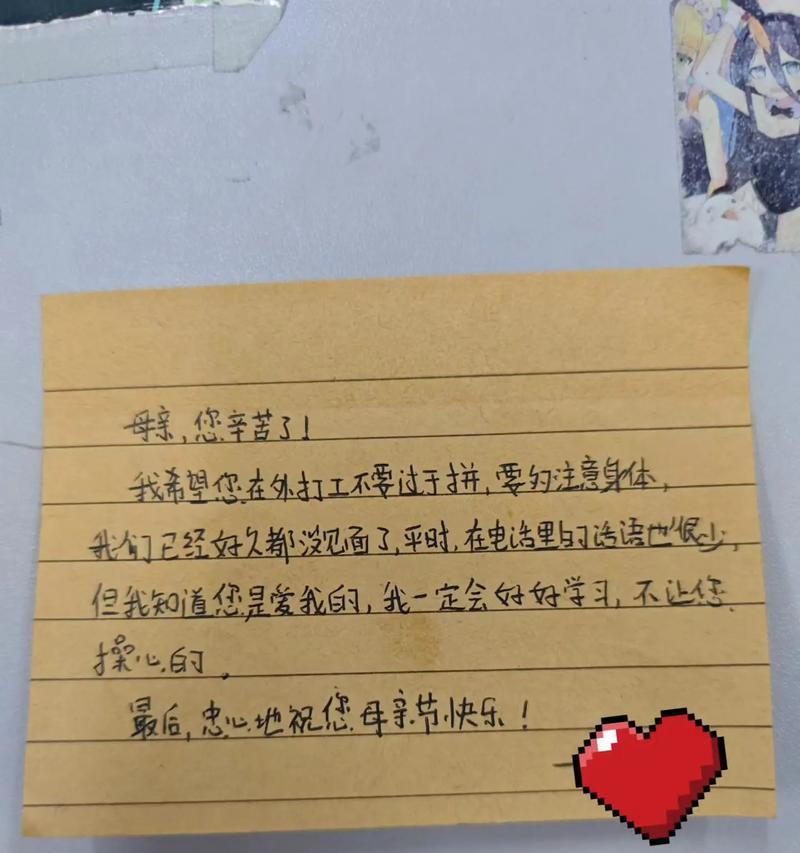 母亲,您辛苦了!
我希望您在外打工不要过于拼,要多注意身体,
我们已经好久都没见面了,平时,在电话里的话语也很少,
但我知道您是爱我的,我一定会好好学习,不让您
操心的。
最后,忠心地祝您母亲节快乐!